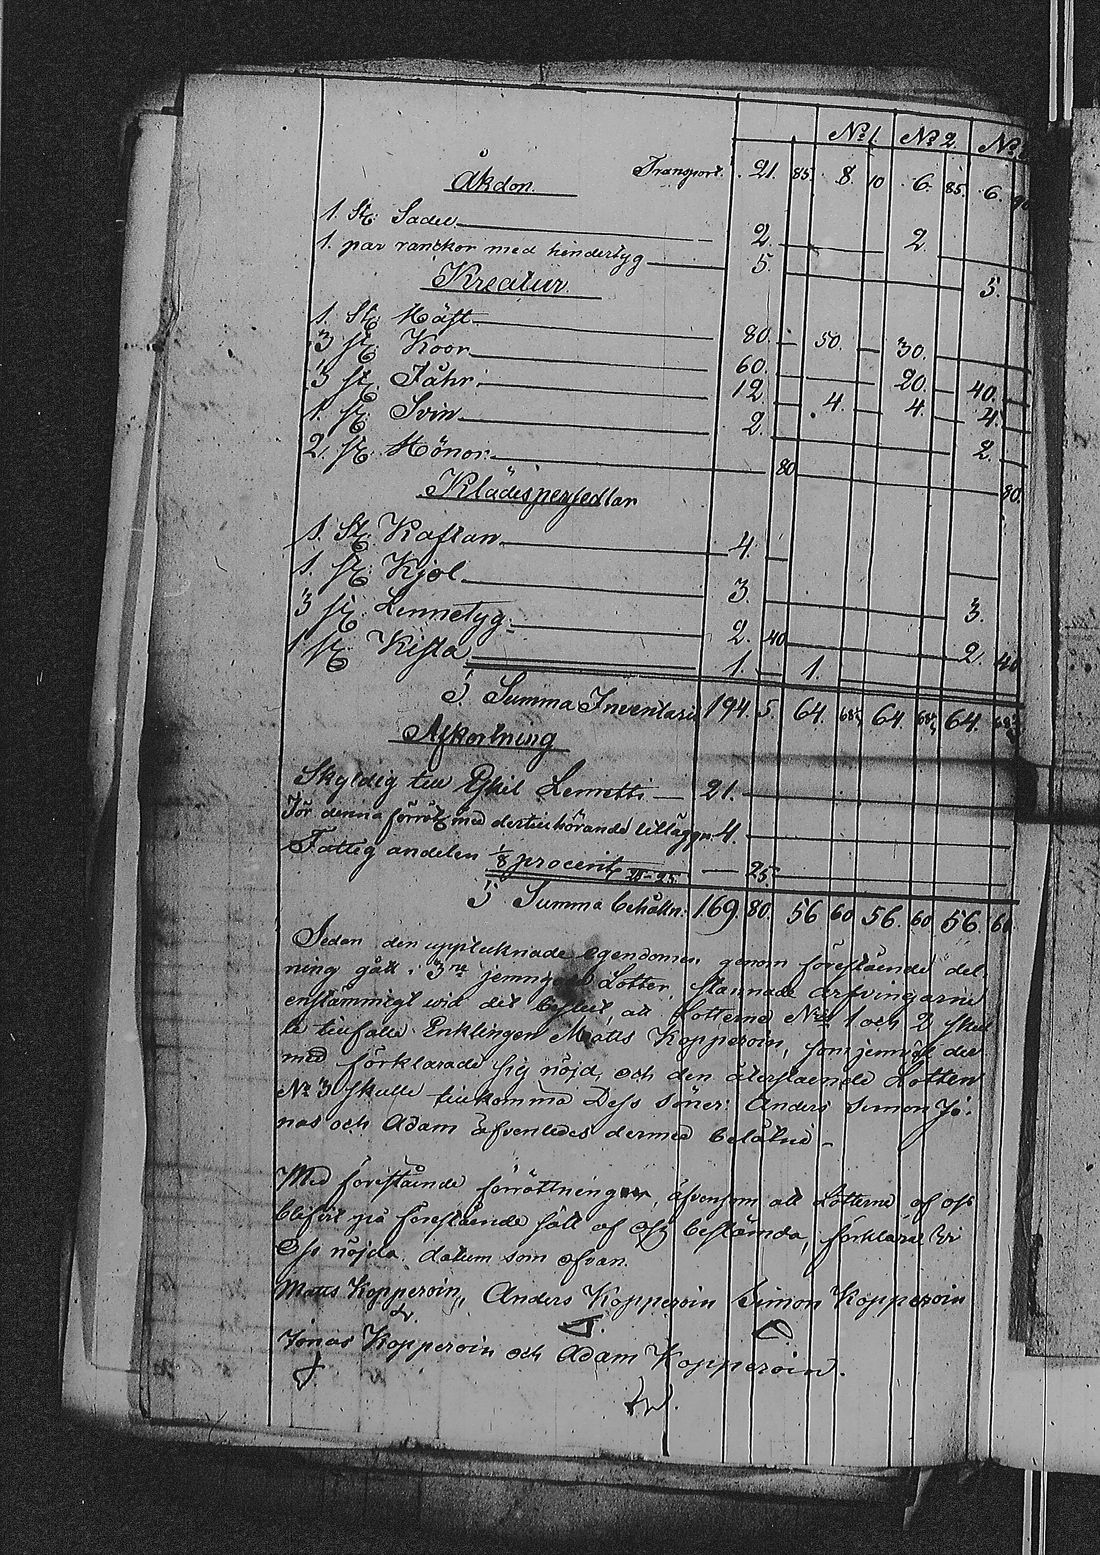 No 1 No 2 No
Transport. 21. 85. 8. 10 6. 85. 6. 90
Åkdon.
1. St: Sadel 2. — 2
1. par ranckor med hindertyg 5. 5.
Kreatur
1. St: Häst 80. — 50. — 30.
3 st: Koor 60. 20. — 40.
3 st: Fåhr 12 — 4. — 4. — 4.
1. st: Svin 2. 2.
2. st: Hönor. 80 80.
Klädespersedlar
1. St: Kaftan 4. —
1. st: Kjol 3. 3.
3 st: Linnetyg. 2. 40 2. 40
1 st: Kista 1. — 1.
S: Summa Inventarii 194. 5. 64. 68 1/3 64 68 1/3 64. 68 1/3
Afkortning
Skyldig till Eskil Lemetti — 21. —
För denna förrätt: med dertill hörande tilläggn: 4. —
Fattig andelen 1/8 procent 24 - 25. — 25.
S: Summa behålln: 169. 80. 56 60 56. 60 56 60
Sedan den upptecknade egendomen genom förestående del-
ning gått i 3ne jemngoda Lotter, stannade arfvingarne
enstämmigt wid det beslut att Lotterne Nris 1 och 2 skul-
le tillfalla Enklingen Matts Kopperoin, som jemväl der
med förklarade sig nöjd, och den återstående Lotten
No 3 skulle tillkomma Dess söner: Anders Simon Jo-
nas och Adam äfvenledes dermed belåtne —
Med förestående förrättning, äfvensom att Lotterne af oss
blifvit på förestående sätt af oss bestämda, förklare Vi
Oss nöjda, datum som ofvan.
Matts Kopperoin, Anders Kopperoin Simon Kopperoin
Jonas Kopperoin och Adam Kopperoin.